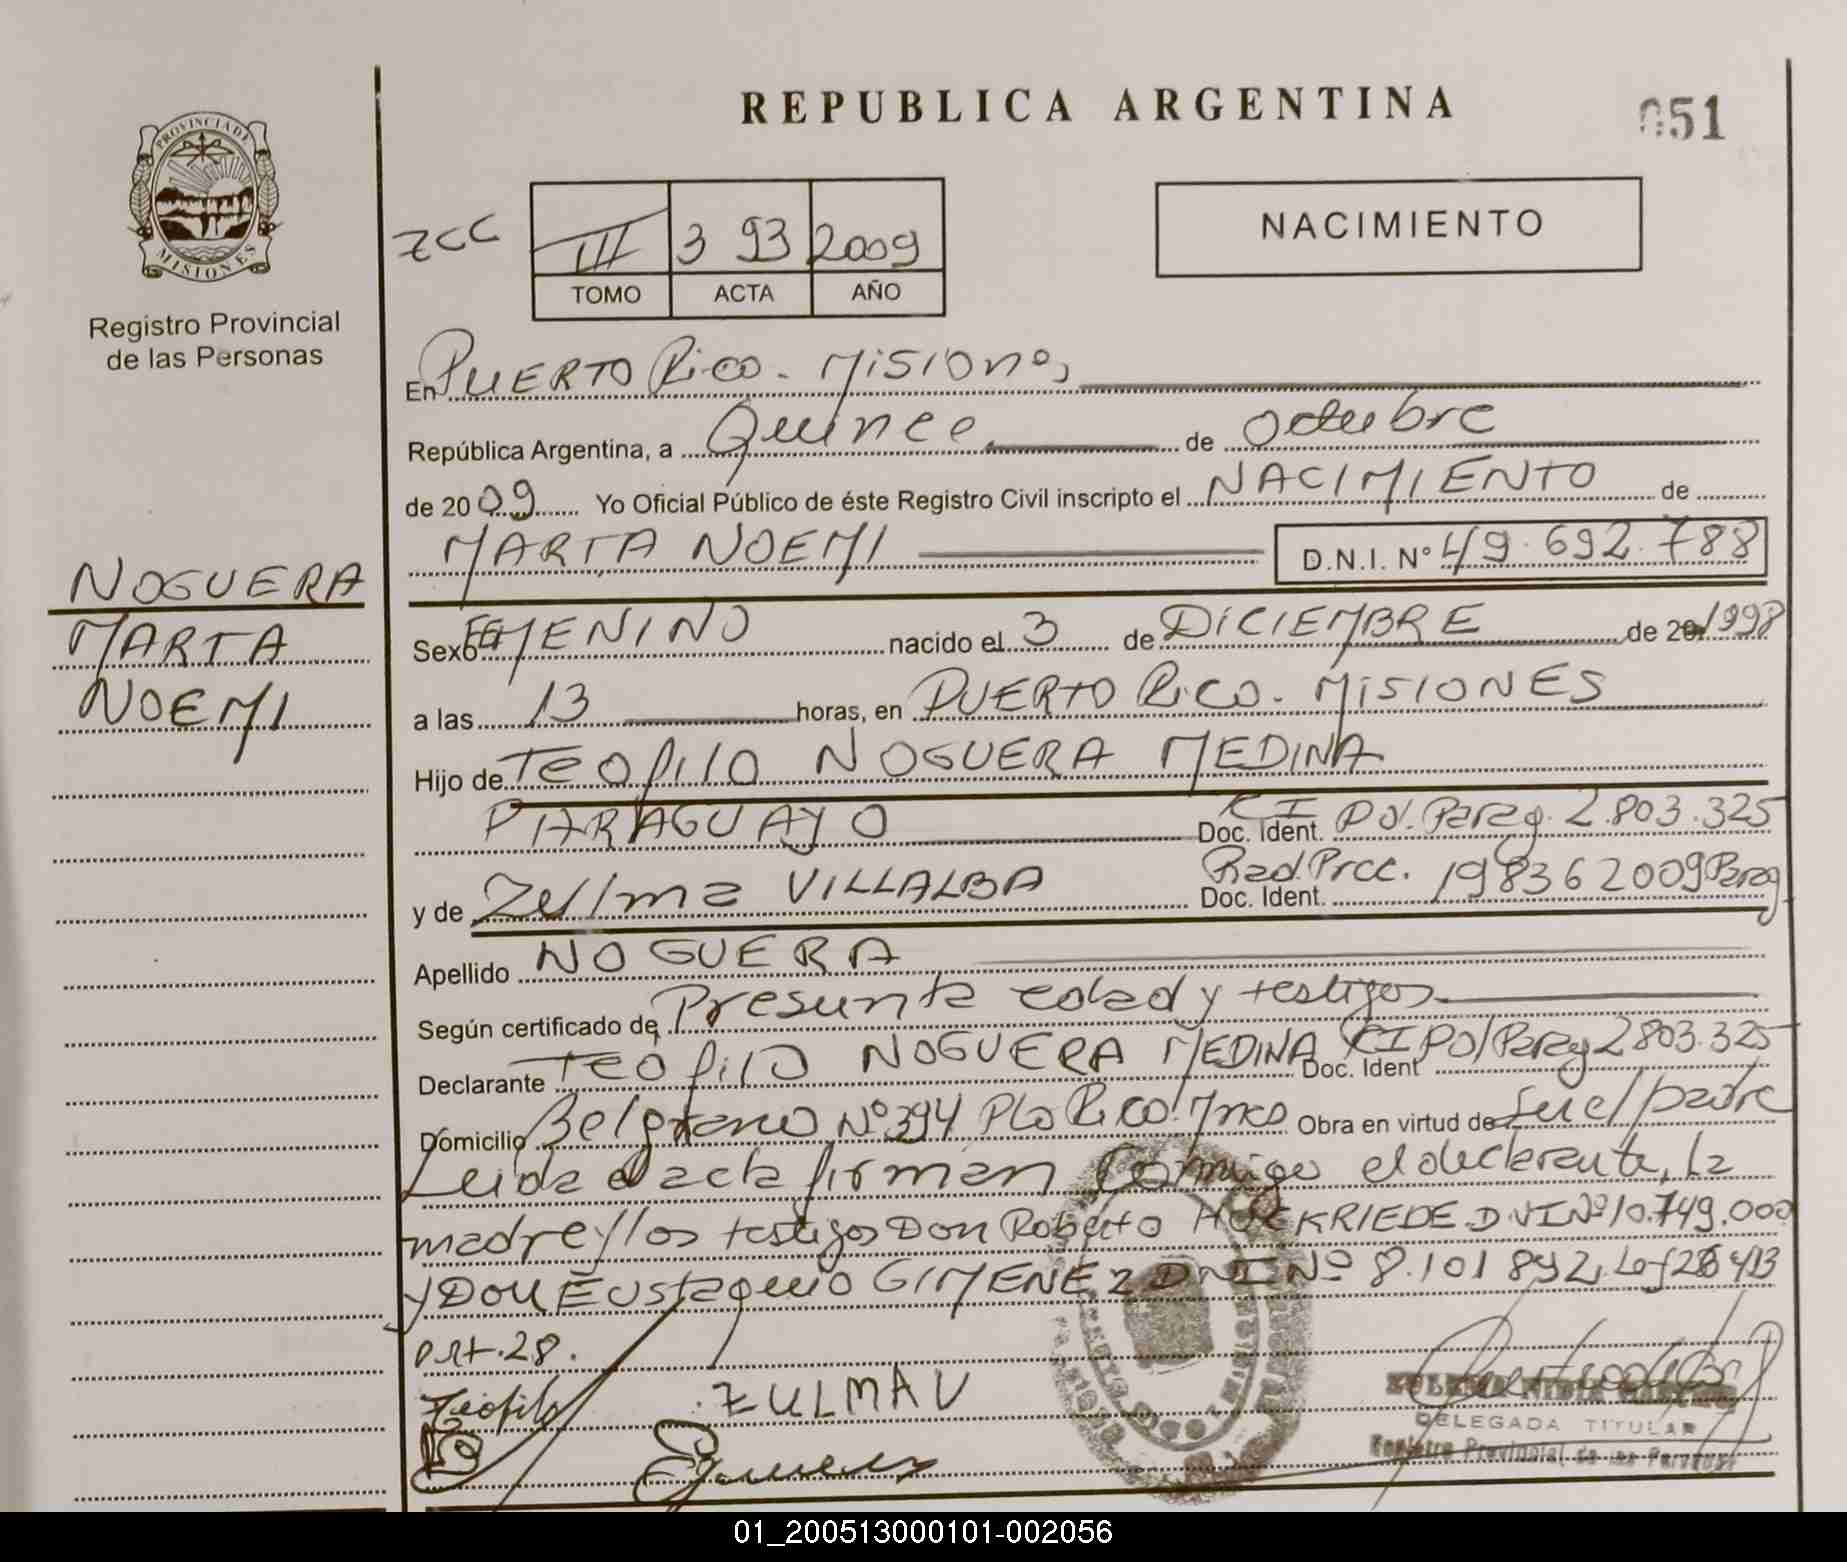 REPUBLICA ARGENTINA
051
PROVINCIA DE
MISIONES
Registro Provincial
de las Personas
ZCC
III 393 2009
TOMO ACTA AÑO
NACIMIENTO
En PUERTO Rico - Misiones
República Argentina, a Quince de octubre
de 2009 Yo Oficial Público de éste Registro Civil inscripto el NACIMIENTO de
MARTA NOEMI D.N.I. Nº 49.692.788
NOGUERA
MARTA
NOEMI
Sexo FEMENINO nacido el 3 de DICIEMBRE de 20 1998
a las 13 horas, en PUERTO Rico - MISIONES
Hijo de Teofilo NOGUERA MEDINA
PARAGUAYO Doc. Ident. CI Pol. Parag. 2.803.325
y de Zulma VILLALBA Doc. Ident. Rad. Prec. 198362009 Parag
Apellido NOGUERA
Según certificado de Presunta edad y testigos
Declarante Teofilo NOGUERA MEDINA Doc. Ident CI POl Parag 2803.325
Domicilio Belgrano Nº 394 Pto Rico. Mnes Obra en virtud de ser el padre
Leida el acta firman conmigo el declarante, La
madre y los testigos Don Roberto DNI Nº 10.749.000
y Don Eustaquio GIMENEZ DNI Nº 8.101 892, Ley 26413
Art. 28.
Teofilo
ZULMA V
DELEGADA TITULAR
Registro Provincial de las Personas
01_200513000101-002056